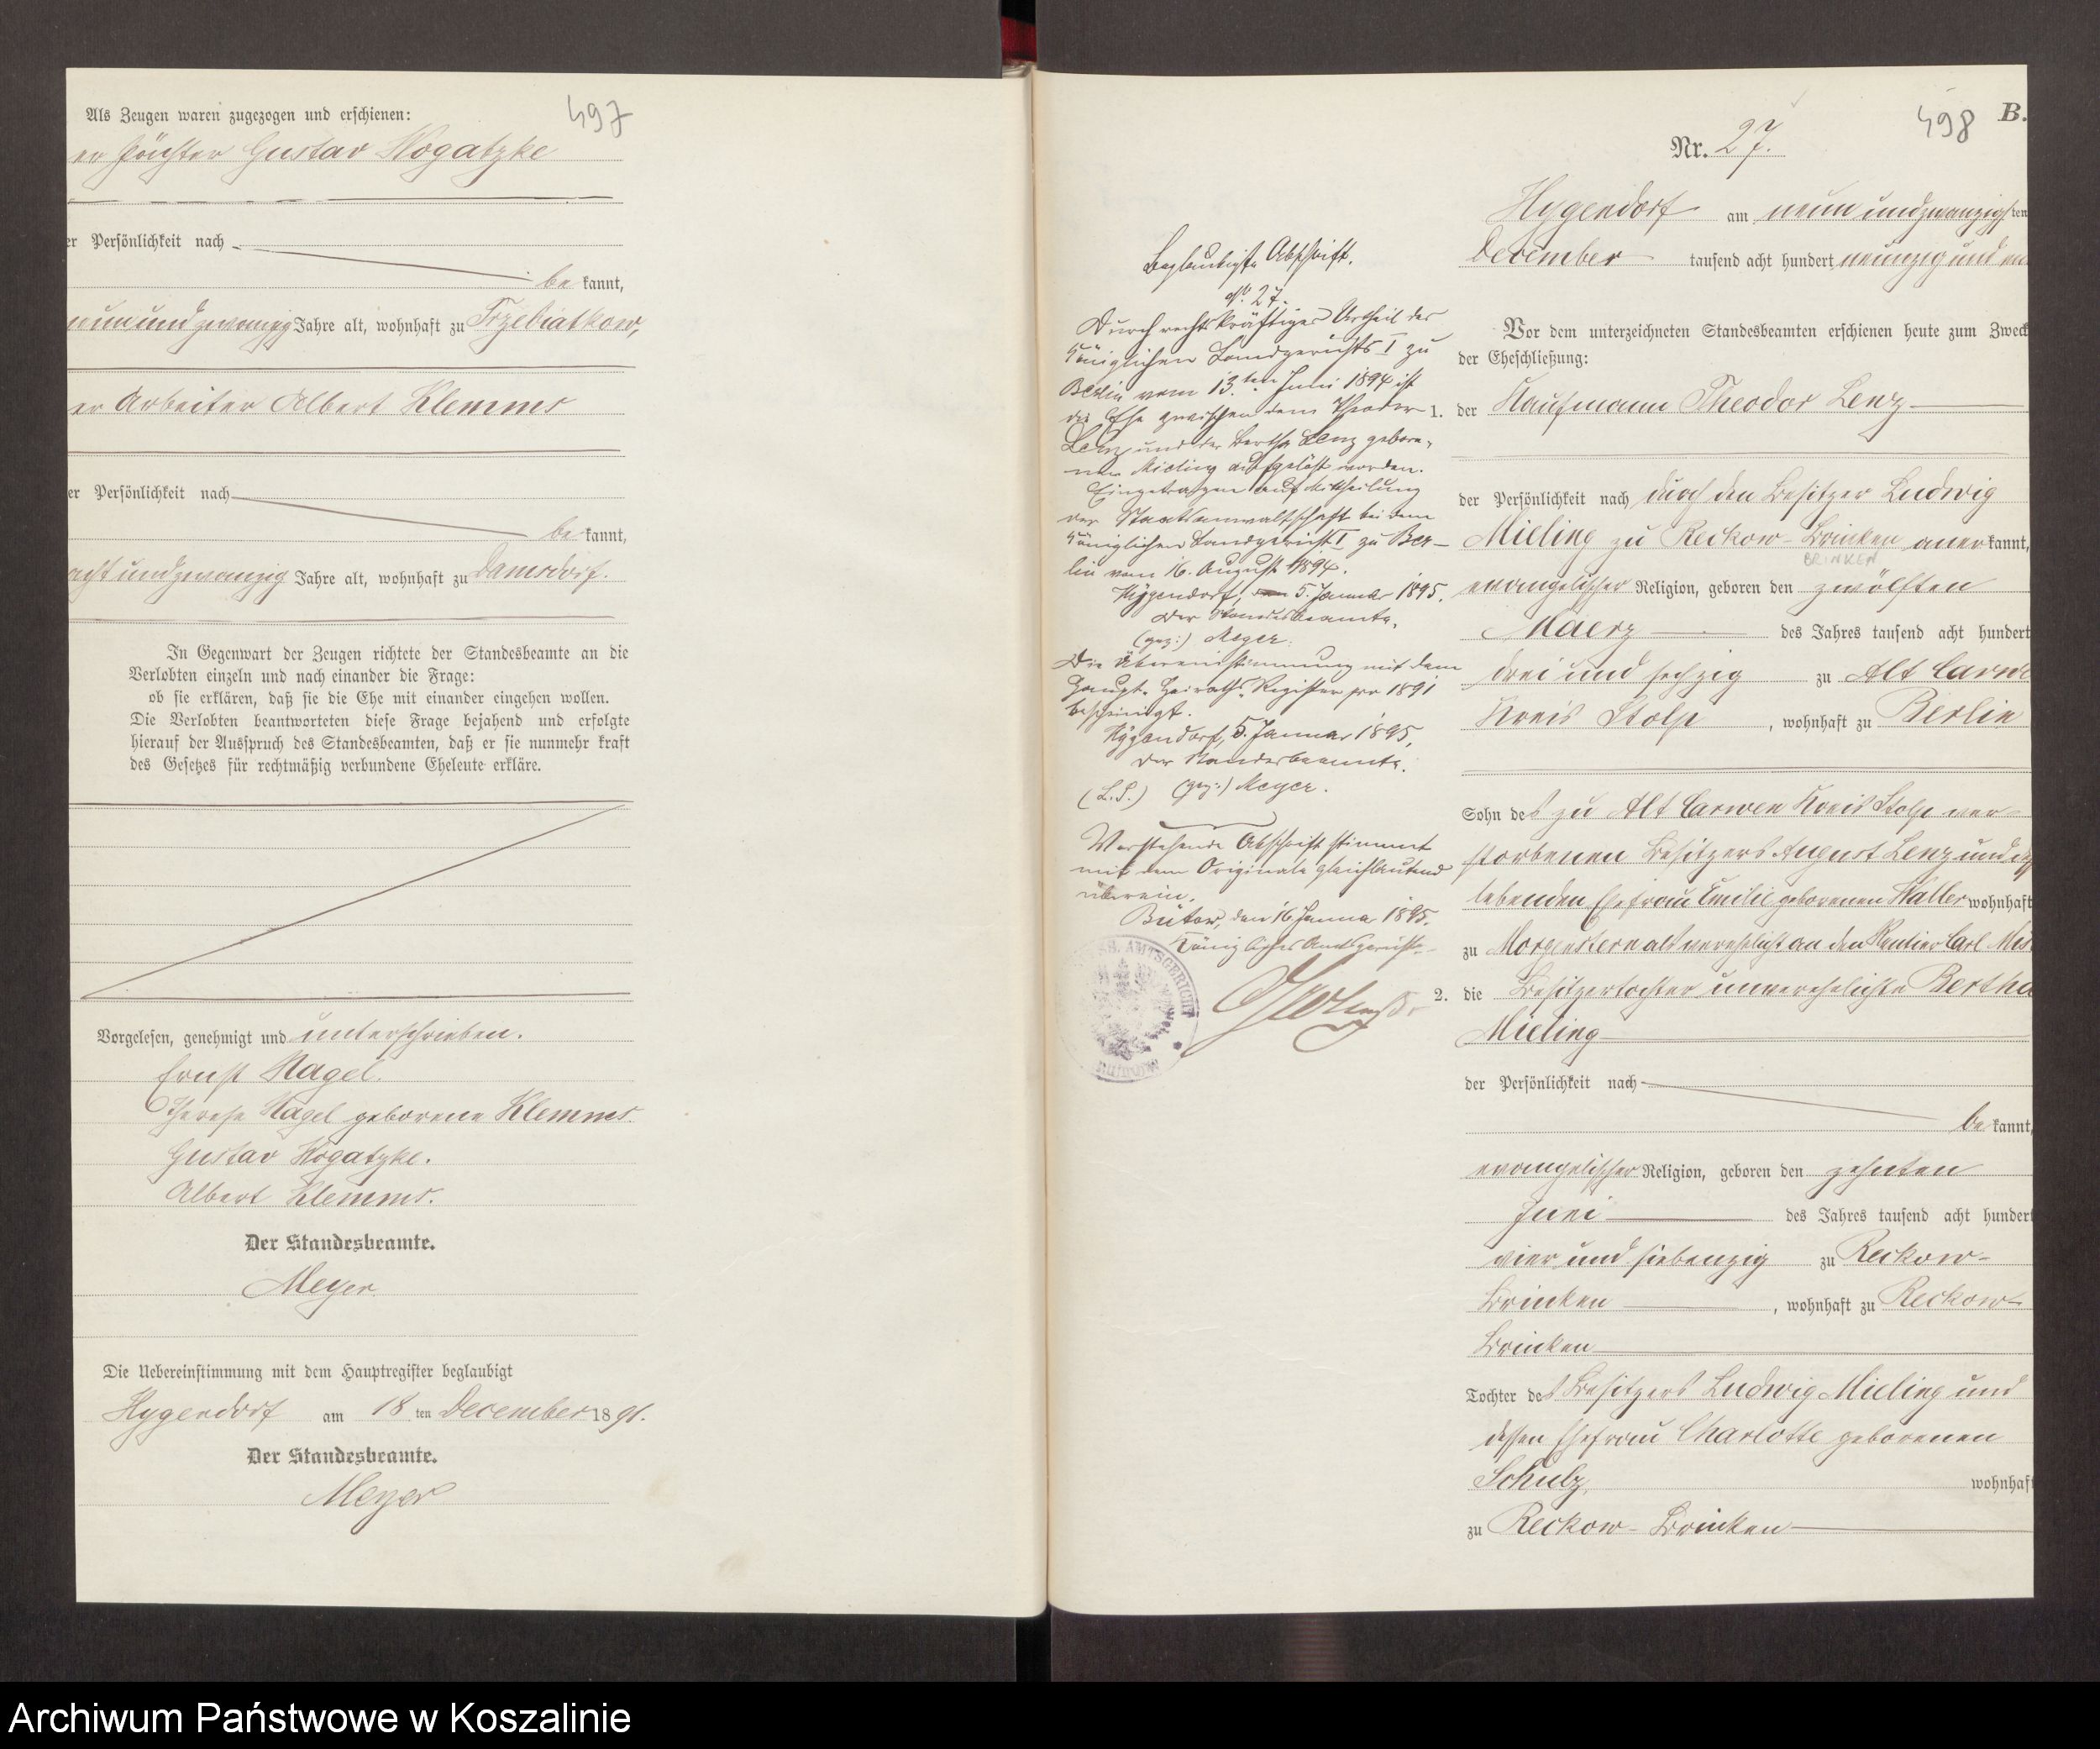 497
Als Zeugen waren zugezogen und erschienen:
er Pächter Gustav Kogatzke
er Persönlichkeit nach
be kannt,
neunundzwanzig Jahre alt, wohnhaft zu Trzebiatkow,
er Arbeiter Albert Klemms
er Persönlichkeit nach
be kannt,
acht und zwanzig Jahre alt, wohnhaft zu Damsdorf.
In Gegenwart der Zeugen richtete der Standesbeamte an die
Verlobten einzeln und nach einander die Frage:
ob sie erklären, daß sie die Ehe mit einander eingehen wollen.
Die Verlobten beantworteten diese Frage bejahend und erfolgte
hierauf der Ausspruch des Standesbeamten, daß er sie nunmehr kraft
des Gesetzes für rechtmäßig verbundene Eheleute erkläre.
Vorgelesen, genehmigt und unterschrieben.
Ernst Nagel.
Therese Nagel geborene Klemms.
Gustav Kogatzke.
Albert Klemms.
Der Standesbeamte.
Meyer
Die Uebereinstimmung mit dem Hauptregister beglaubigt
Hygendorf am 18 ten December 18 91.
Der Standesbeamte.
Meyer
Beglaubigte Abschrift.
No. 27.
Durch rechtskräftiges Urtheil des
Königlichen Landgerichts I zu
Berlin vom 13.ten Juni 1894 ist
die Ehe zwischen dem Theodor
Lenz und der Bertha Lenz gebore-
nen Mieling aufgelöst worden.
Eingetragen auf Mittheilung
der Staatsanwaltschaft bei dem
Königlichen Landgericht I zu Ber-
lin vom 16. August 1894.
Hygendorf, 5. Januar 1895.
Der Standesbeamte.
(gez:) Meyer.
Die Übereinstimmung mit dem
Haupt-Heiraths-Register pro 1891
bescheinigt.
Hygendorf, 5. Januar 1895.
Der Standesbeamte.
(L.S.) (gez:) Meyer.
Vorstehende Abschrift stimmt
mit dem Originale gleichlautend
überein.
Bütow, den 16. Januar 1895.
Königliches Amtsgericht.
AMTSGERICHT
498 B.
Nr. 27.
Hygendorf am neun und zwanzigsten
December tausend acht hundert neunzig und
Vor dem unterzeichneten Standesbeamten erschienen heute zum Zweck
der Eheschließung:
1. der Kaufmann Theodor Lenz
der Persönlichkeit nach durch den Besitzer Ludwig
Mieling zu Reckow-Brinken anerkannt,
BRINKEN
evangelischer Religion, geboren den zwölften
Maerz des Jahres tausend acht hundert
drei und sechzig zu Alt Carwe
Kreis Stolp, wohnhaft zu Berlin
Sohn des zu Alt Carwen Kreis Stolp ver-
storbenen Besitzers August Lenz und
lebenden Ehefrau Emilie geborenen Haller wohnhaft
zu Morgenstern alt verehelicht an den Rentier Carl
2. die Besitzertochter unverehelichte Bertha
Mieling
der Persönlichkeit nach
be kannt,
evangelischer Religion, geboren den zehnten
Juni des Jahres tausend acht hundert
vier und siebenzig zu Reckow-
Brinken, wohnhaft zu Reckow-
Brinken
Tochter des Besitzers Ludwig Mieling und
dessen Ehefrau Charlotte geborenen
Schulz, wohnhaft
zu Reckow-Brinken
Archiwum Państwowe w Koszalinie